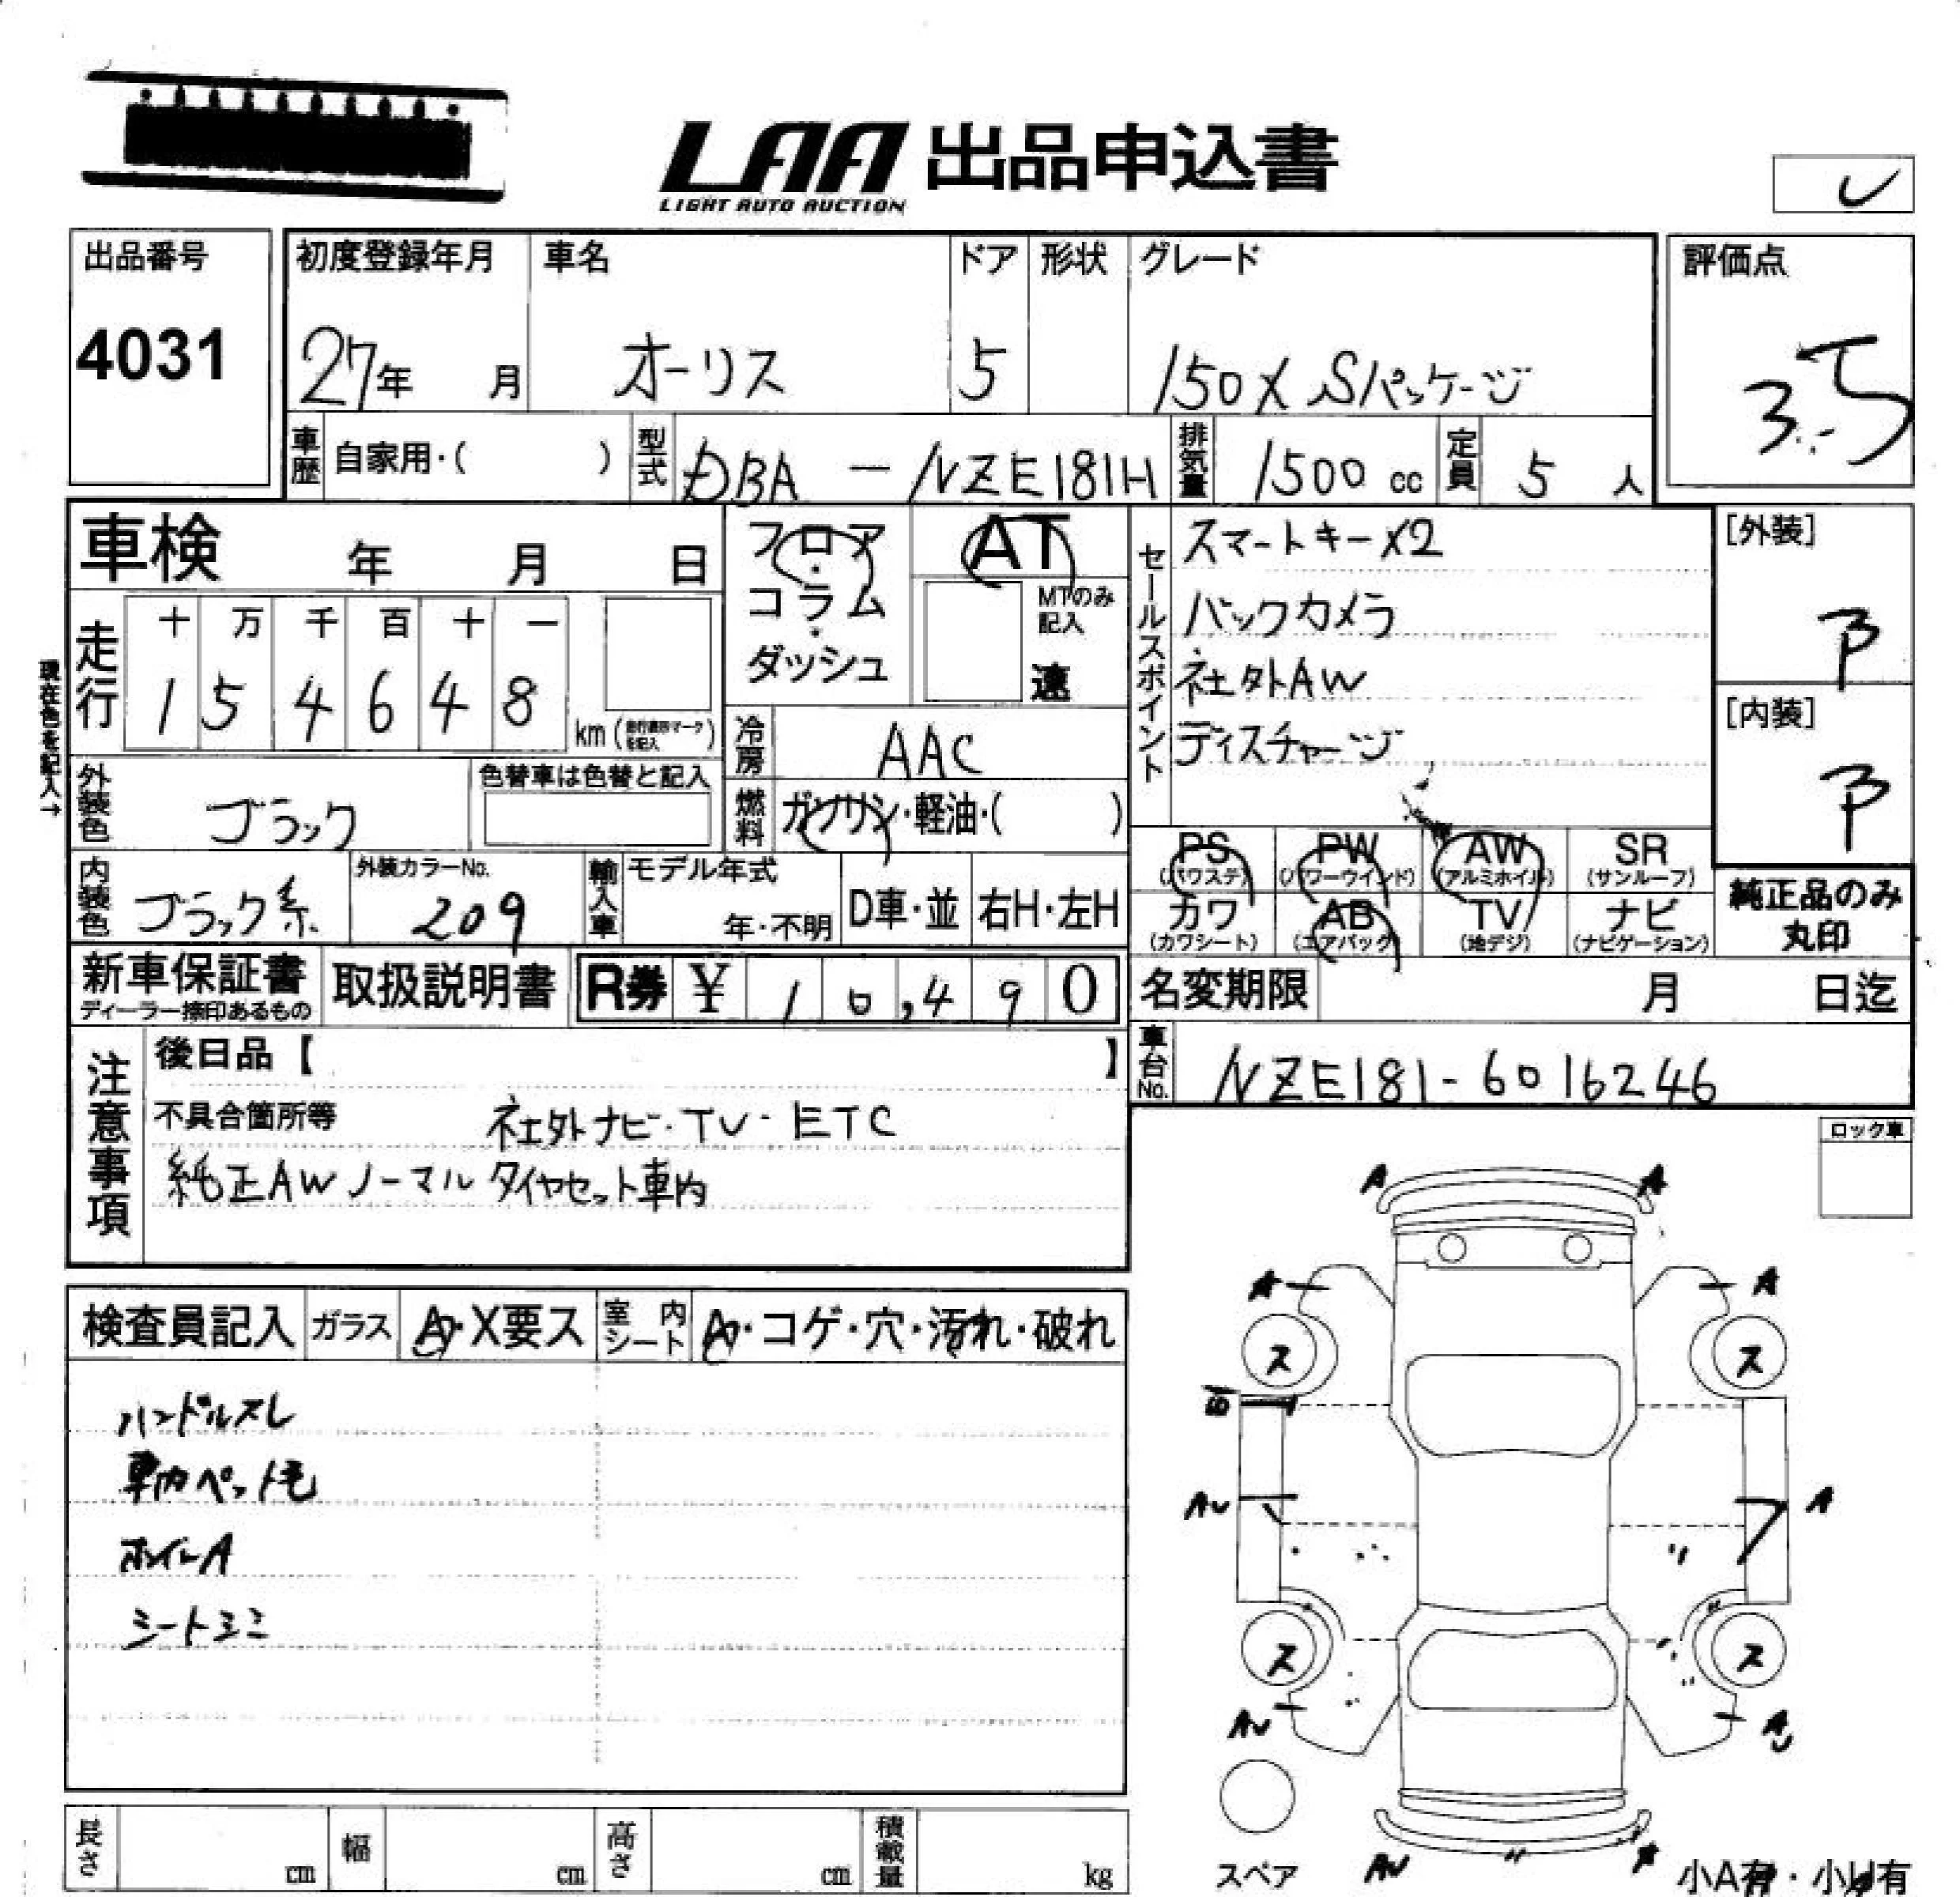 LAA 出品申込書
LIGHT AUTO AUCTION
出品番号
4031
初度登録年月
27年 月
車名
オーリス
ドア
5
形状
グレード
150X Sパッケージ
評価点
3.5
車歴
自家用・( )
型式
DBA - NZE181H
排気量
1500 cc
定員
5 人
車検 年 月 日
フロア・コラム・ダッシュ
AT
MTのみ記入
速
セールスポイント
スマートキーX2
バックカメラ
社外AW
ディスチャージ
[外装]
B
[内装]
B
現在色を記入→
走行
十 万 千 百 十 一
1 5 4 6 4 8
km
冷房
AAC
燃料
ガソリン・軽油・( )
外装色
ブラック
色替車は色替と記入
内装色
ブラック系
外装カラーNo.
209
輸入車
モデル年式
年・不明
D車・並
右H・左H
PS (パワステ)
PW (パワーウインド)
AW (アルミホイル)
SR (サンルーフ)
カワ (カワシート)
AB (エアバック)
TV (地デジ)
ナビ (ナビゲーション)
純正品のみ
丸印
新車保証書
ディーラー捺印あるもの
取扱説明書
R券 ¥ 10,490
名変期限 月 日迄
車台No.
NZE181-6016246
注意事項
後日品【 】
不具合箇所等 社外ナビ・TV・ETC
純正AWノーマルタイヤセット車内
ロック車
検査員記入
ガラス
A・X要ス
室内シート
A・コゲ・穴・汚れ・破れ
ハンドルスレ
車内ペット毛
ホイルA
シートシミ
A A
A A
ス ス
AU A
ス ス
AU AU
スペア
AU
小A有・小U有
長さ cm
幅 cm
高さ cm
積載量 kg